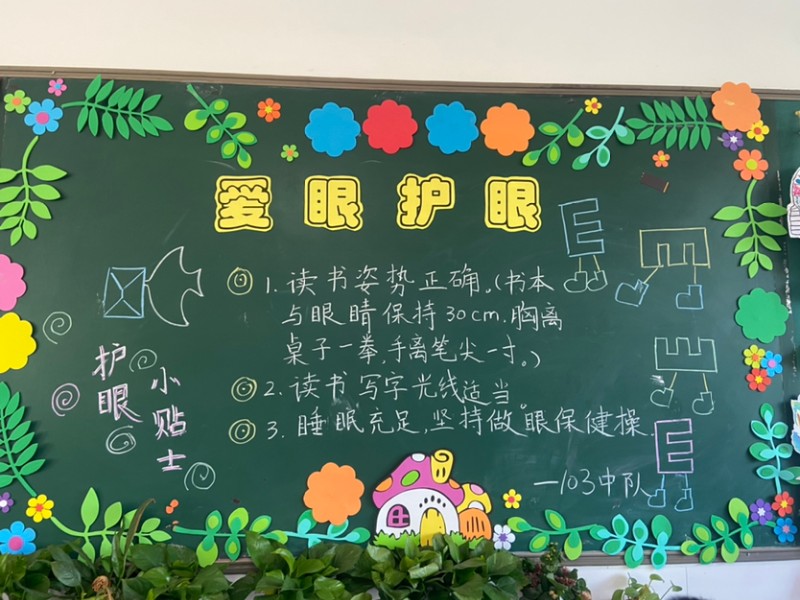 爱眼护眼
1.读书姿势正确。(书本
与眼睛保持30cm.胸离
桌子一拳,手离笔尖一寸。)
2.读书写字光线适当。
3.睡眠充足,坚持做眼保健操.
—103中队
护眼
小贴士
E
E
E
E